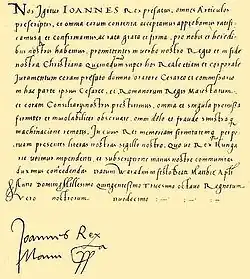 Nos igitur IOANNES Rex prefatus, omnes Articulos
prescriptos, et omnia eorum contenta acceptamus approbamus ratifi
camus et confirmamus, rata grata et firma, pro nobis et heredi
bus nostris habemus, promittentes in verbo nostro Regio et in fide
nostra Christiana
Juramentum coram prefato domino oratore Cesareo et commissario
in hac parte ipsius Cesaree, et Romanorum Regis Maiestatum
et coram Consiliarijs nostris prestitimus, omnia et singula premissa
firmiter et inviolabiliter observare, omni dolo et fraude sinistraq
machinatione remotis, In cuius Rei memoriam firmitatemq perpe
tuam presentes literas nostras sigillo nostro, Quo ut Rex Hunga
rie utimur impendenti, et subscriptione manus nostre communitas
duximus concedendas Datum Waradini festo Beati Mathie Apli
Anno Domini Millesimo Quingentesimo Tricesimo octavo Regnorum
vero nostrorum duodecimo
Joannes Rex
Manu ppa